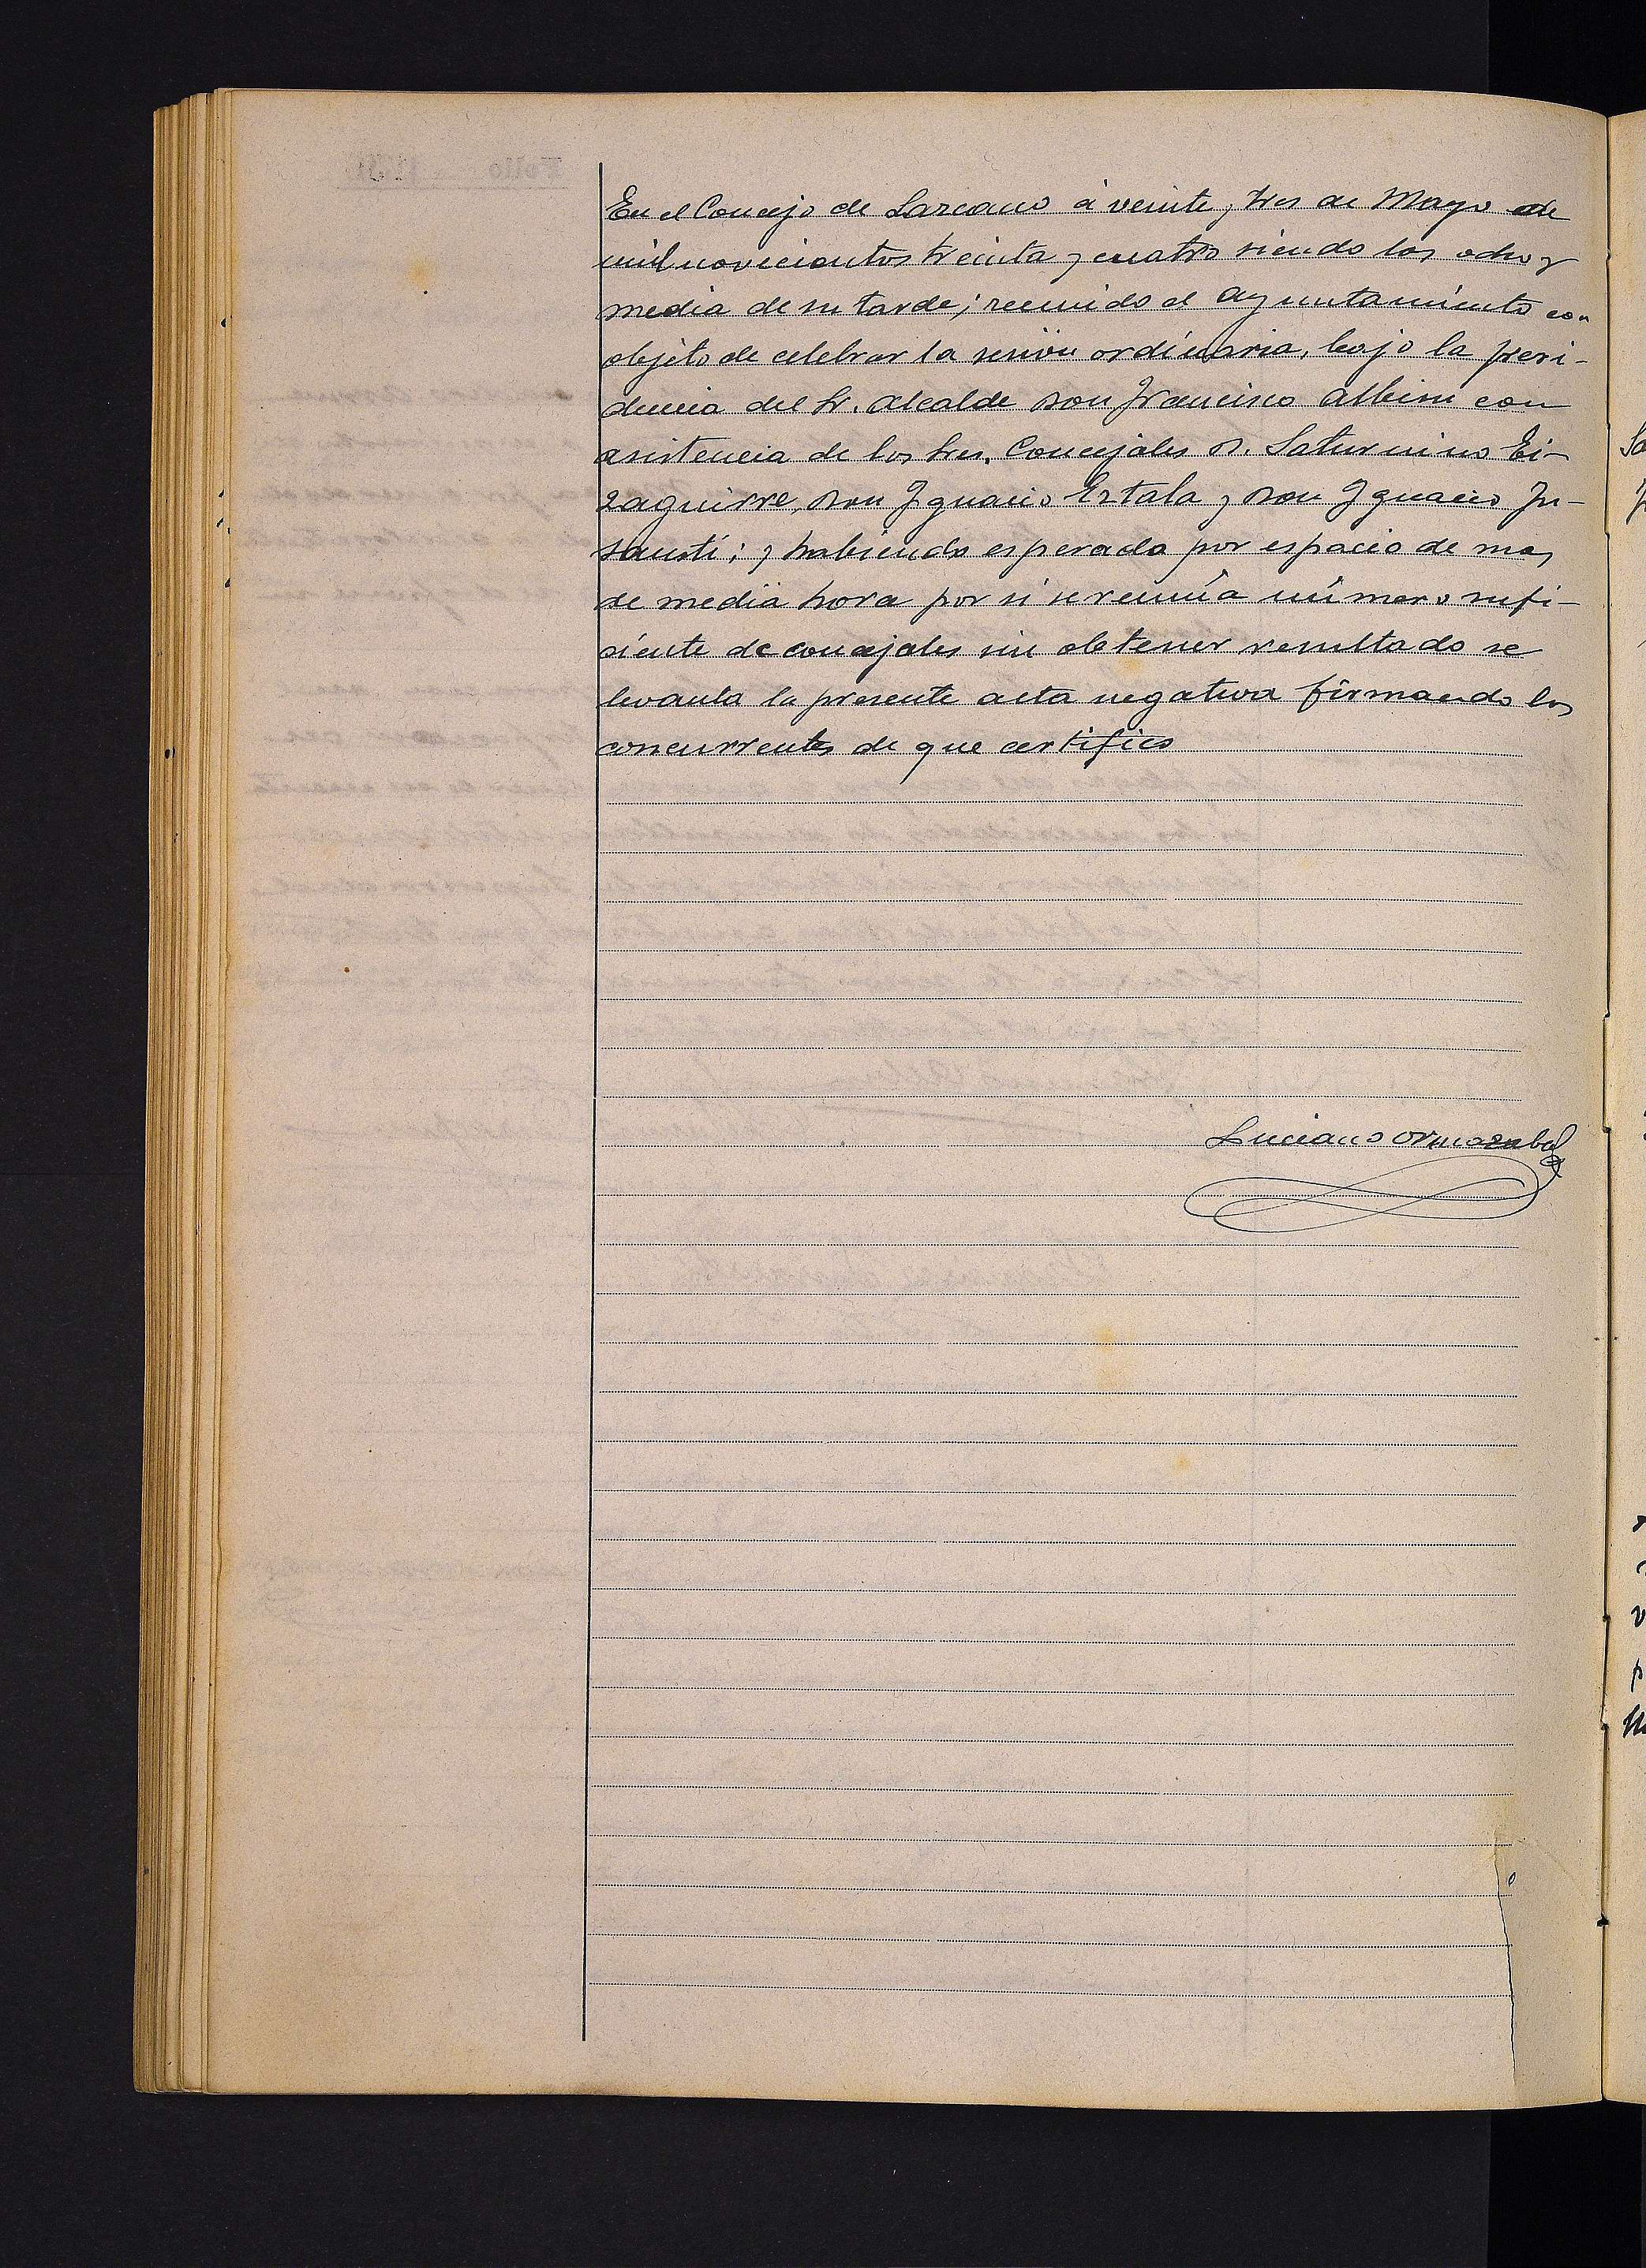 En el Concejo de Lazcano á veinte y tres de Mayo de
mil novecientos treinta y cuatro siendo las ocho y
media de su tarde; reunido el Ayuntamiento con
objeto de celebrar la sesión ordinaria, bajo la presi-
dencia del Sr. Alcalde Don Francisco Albisu con
asistencia de los Sres. Concejales D. Saturnino Ei-
zaguirre, Don Ignacio Eztala y Don Ignacio In-
sausti; y habiendo esperado por espacio de mas
de media hora por si se reunía número sufi-
ciente de concejales sin obtener resultado se
levanta la presente acta negativa firmando los
concurrentes de que certifico
Luciano Ormazabal